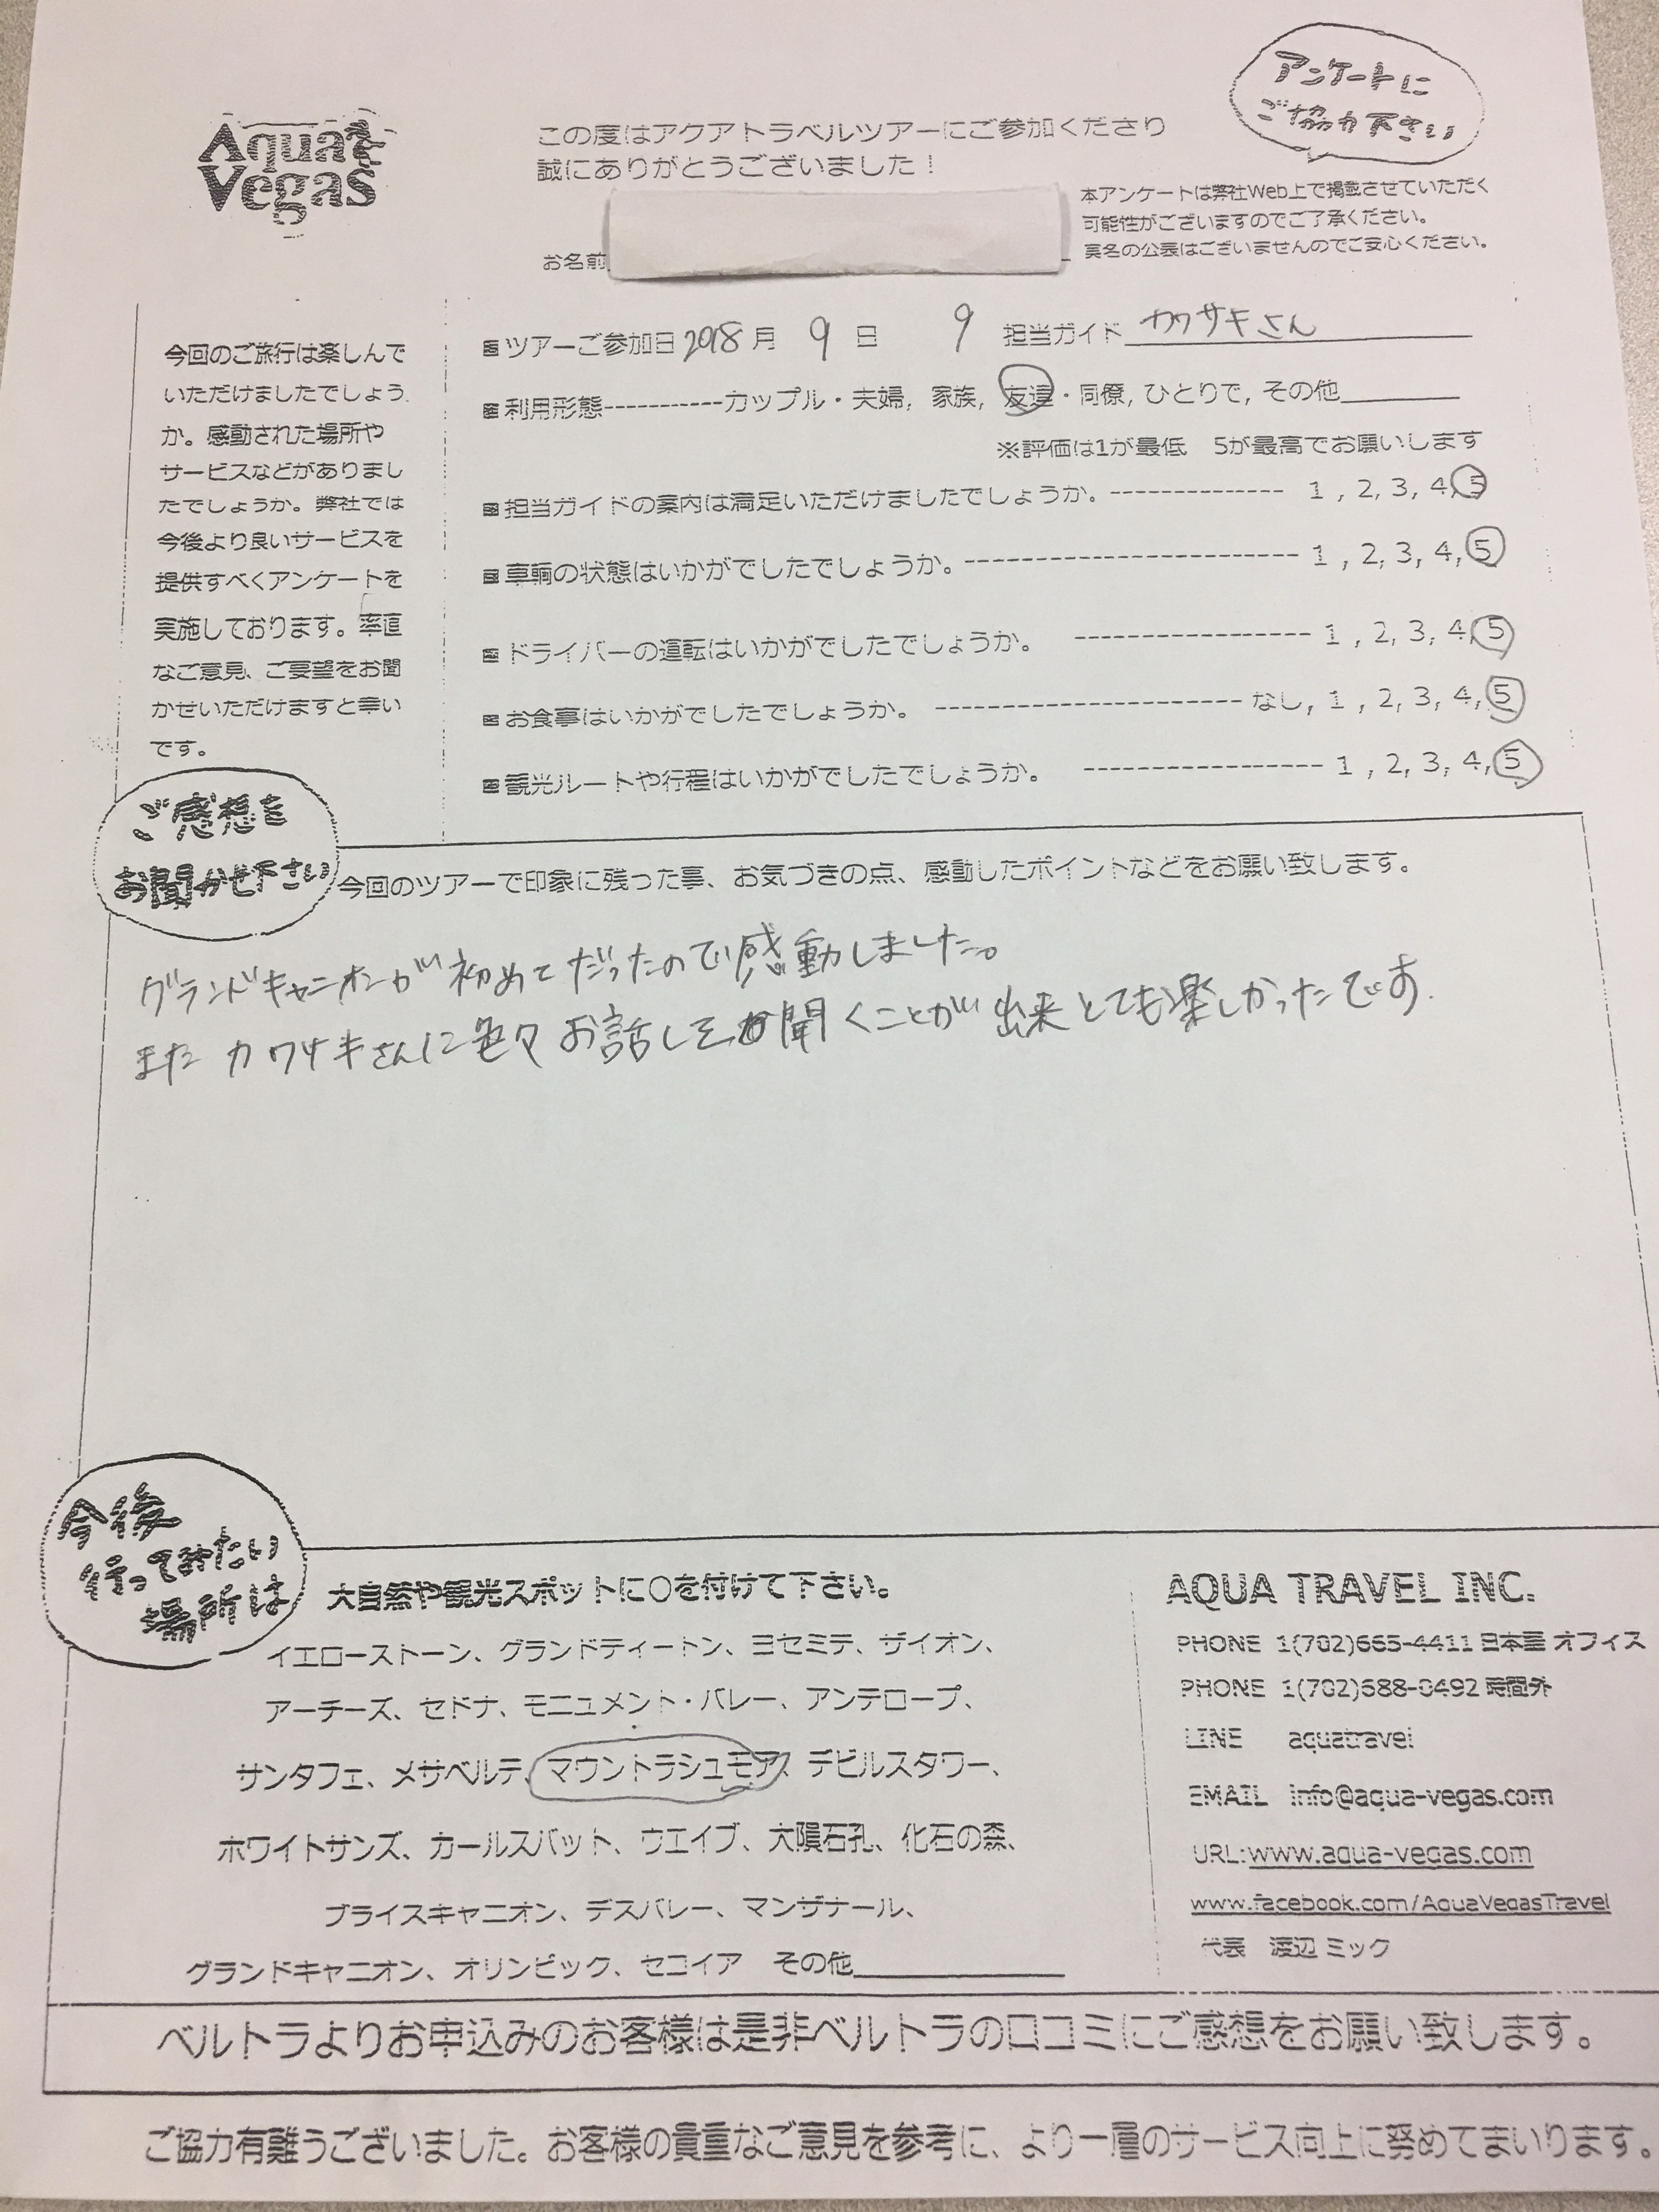 Aqua
Vegas
アンケートに
ご協力下さい
この度はアクアトラベルツアーにご参加くださり
誠にありがとうございました！
本アンケートは弊社Web上で掲載させていただく
可能性がございますのでご了承ください。
実名の公表はございませんのでご安心ください。
お名前
今回のご旅行は楽しんで
いただけましたでしょう
か。感動された場所や
サービスなどがありまし
たでしょうか。弊社では
今後より良いサービスを
提供すべくアンケートを
実施しております。率直
なご意見、ご要望をお聞
かせいただけますと幸い
です。
ツアーご参加日 2018 月 9 日 9 担当ガイド カワサキさん
利用形態-----------カップル・夫婦, 家族, 友達・同僚, ひとりで, その他
※評価は1が最低　5が最高でお願いします
担当ガイドの案内は満足いただけましたでしょうか。-------------- 1 , 2, 3, 4, 5
車輌の状態はいかがでしたでしょうか。--------------------------- 1 , 2, 3, 4, 5
ドライバーの運転はいかがでしたでしょうか。 ------------------- 1 , 2, 3, 4, 5
お食事はいかがでしたでしょうか。 ------------------------ なし, 1 , 2, 3, 4, 5
観光ルートや行程はいかがでしたでしょうか。 ------------------- 1 , 2, 3, 4, 5
ご感想を
お聞かせ下さい
今回のツアーで印象に残った事、お気づきの点、感動したポイントなどをお願い致します。
グランドキャニオンが初めてだったので感動しました。
また カワサキさんに色々お話しを聞くことが出来とても楽しかったです.
今後
行ってみたい
場所は
大自然や観光スポットに○を付けて下さい。
イエローストーン、グランドティートン、ヨセミテ、ザイオン、
アーチーズ、セドナ、モニュメント・バレー、アンテロープ、
サンタフェ、メサベルテ、マウントラシュモア、デビルスタワー、
ホワイトサンズ、カールスバット、ウエイブ、大隕石孔、化石の森、
ブライスキャニオン、デスバレー、マンザナール、
グランドキャニオン、オリンピック、セコイア　その他
AQUA TRAVEL INC.
PHONE 1(702)665-4411 日本語 オフィス
PHONE 1(702)688-0492 時間外
LINE aquatravel
EMAIL info@aqua-vegas.com
URL:www.aqua-vegas.com
www.facebook.com/AquaVegasTravel
代表　渡辺 ミック
ベルトラよりお申込みのお客様は是非ベルトラの口コミにご感想をお願い致します。
ご協力有難うございました。お客様の貴重なご意見を参考に、より一層のサービス向上に努めてまいります。